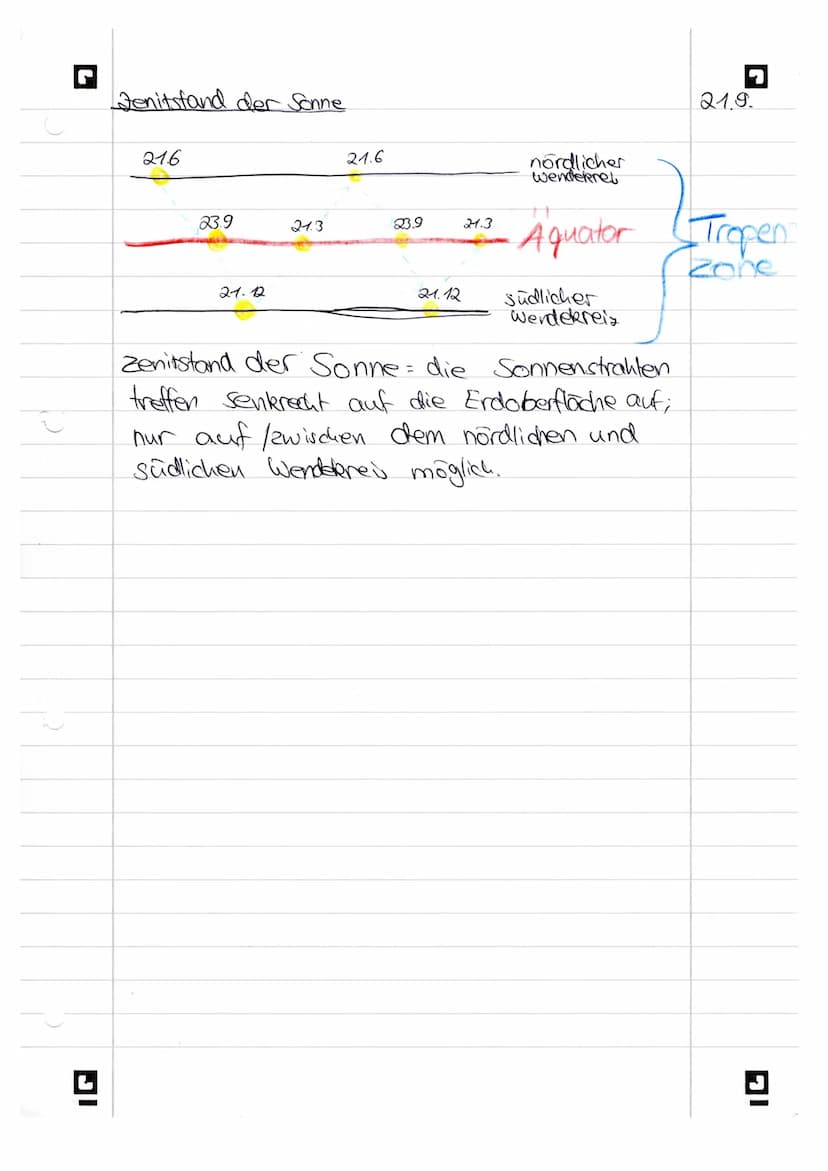 Zenitstand der Sonne
21.9.
21.6
21.6
nördlicher
Wendekreis
23.9
21.3
23.9
21.3
Äquator
Tropen
zone
21.12
21.12
südlicher
Wendekreis
Zenitstand der Sonne = die Sonnenstrahlen
treffen senkrecht auf die Erdoberfläche auf;
nur auf /zwischen dem nördlichen und
südlichen Wendekreis möglich.